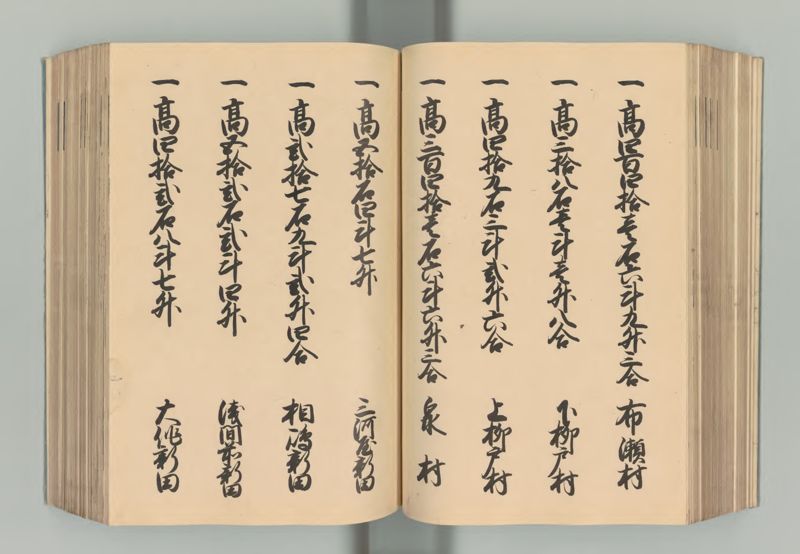 一高四百四拾壱石六斗九升三合 布瀬村
一高三拾八石壱斗壱升八合 下柳戸村
一高四拾九石三斗弐升六合 上柳戸村
一高三百四拾壱石六斗六升三合 泉村
一高五拾石四斗七升 三河屋新田
一高弐拾七石九斗弐升四合 相嶋新田
一高五拾弐石弐斗四升 浅間前新田
一高四拾弐石八斗七升 大作新田